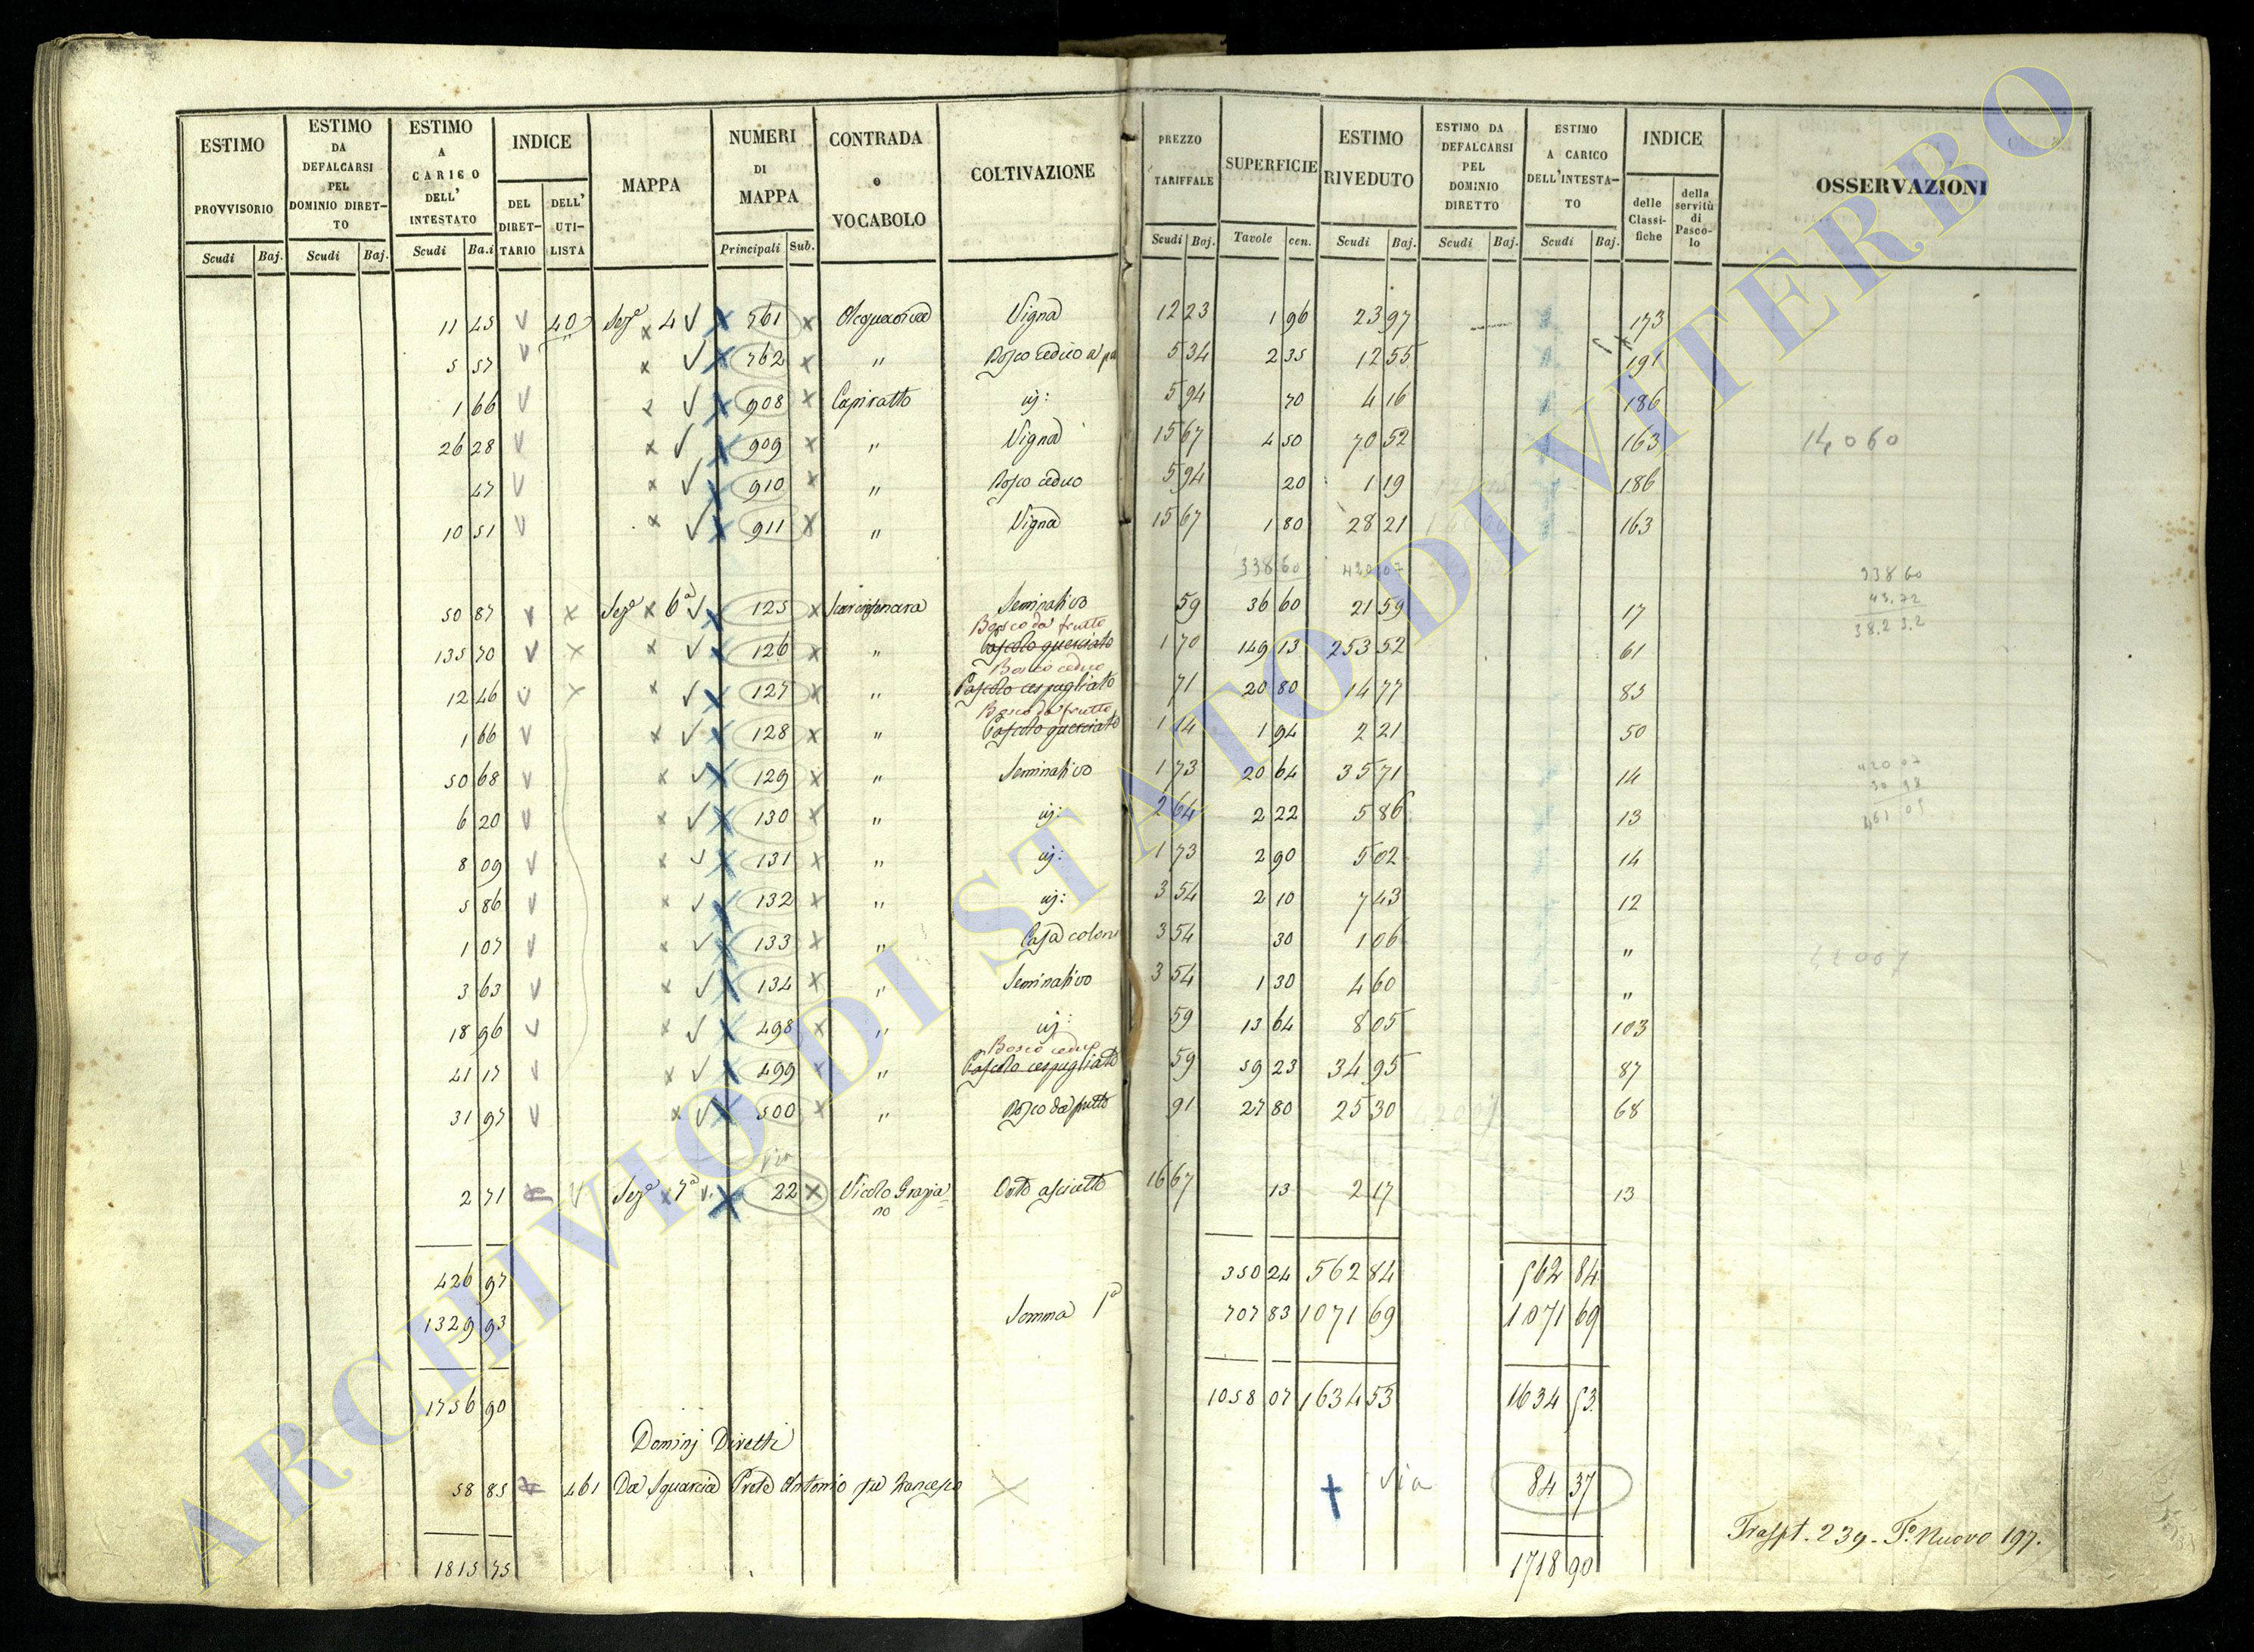 ESTIMO PROVVISORIO Scudi Baj.
ESTIMO DA DEFALCARSI PEL DOMINIO DIRET- TO Scudi Baj.
ESTIMO A CARICO DELL' INTESTATO Scudi Ba.i
INDICE DEL DIRET- TARIO DELL' UTI- LISTA
MAPPA
NUMERI DI MAPPA Principali Sub.
CONTRADA o VOCABOLO
COLTIVAZIONE
PREZZO TARIFFALE Scudi Baj.
SUPERFICIE Tavole cen.
ESTIMO RIVEDUTO Scudi Baj.
ESTIMO DA DEFALCARSI PEL DOMINIO DIRETTO Scudi Baj.
ESTIMO A CARICO DELL'INTESTA- TO Scudi Baj.
INDICE delle Classi- fiche della servitù di Pasco- lo
OSSERVAZIONI
11 45 Sez.e 4 761 Vigna 12 23 1 96 23 97 173
5 57 762 " Bosco ceduo 5 34 2 35 12 55 191
1 66 908 Capiratto id: 5 94 70 4 16 186
26 28 909 " Vigna 15 67 4 50 70 52 163
14060
47 910 " Bosco ceduo 5 94 20 1 19 186
10 51 911 " Vigna 15 67 1 80 28 21 163
338 60 420 07
338 60
43.72
38.2 3.2
50 87 Sez.e 6a 125 Seminativo 59 36 60 21 59 17
Bosco da frutto
135 70 126 " Pascolo querciato 1 70 149 13 253 52 61
Bosco ceduo
12 46 127 " Pascolo cespugliato 71 20 80 14 77 83
Bosco da frutto
1 66 128 " Pascolo querciato 1 14 1 94 2 21 50
50 68 129 " Seminativo 1 73 20 64 35 71 14
420 07
30 98
6 20 130 " id: 2 64 2 22 5 86 13
8 09 131 " id: 1 73 2 90 5 02 14
5 86 132 " id: 3 54 2 10 7 43 12
1 07 133 " Casa colon 3 54 30 1 06 "
3 63 134 " Seminativo 3 54 1 30 4 60 "
18 96 498 " id: 59 13 64 8 05 103
Bosco ceduo
41 17 499 " Pascolo cespugliato 59 59 23 34 95 87
31 97 500 " Bosco da frutto 91 27 80 25 30 68
2 71 Sez.e 7a 22 Vicolo Grazia= no Orto asciutto 16 67 13 2 17 13
426 97 350 24 562 84 562 84
1329 93 Somma 1a 707 83 1071 69 1071 69
1756 90 1058 07 1634 53 1634 53
Dominj Diretti
58 85 461 Da Squarcia Prete Antonio fu Francesco via 84 37
Traspt. 239 - T.o Nuovo 197.
1815 75 1718 90
ARCHIVIO DI STATO DI VITERBO